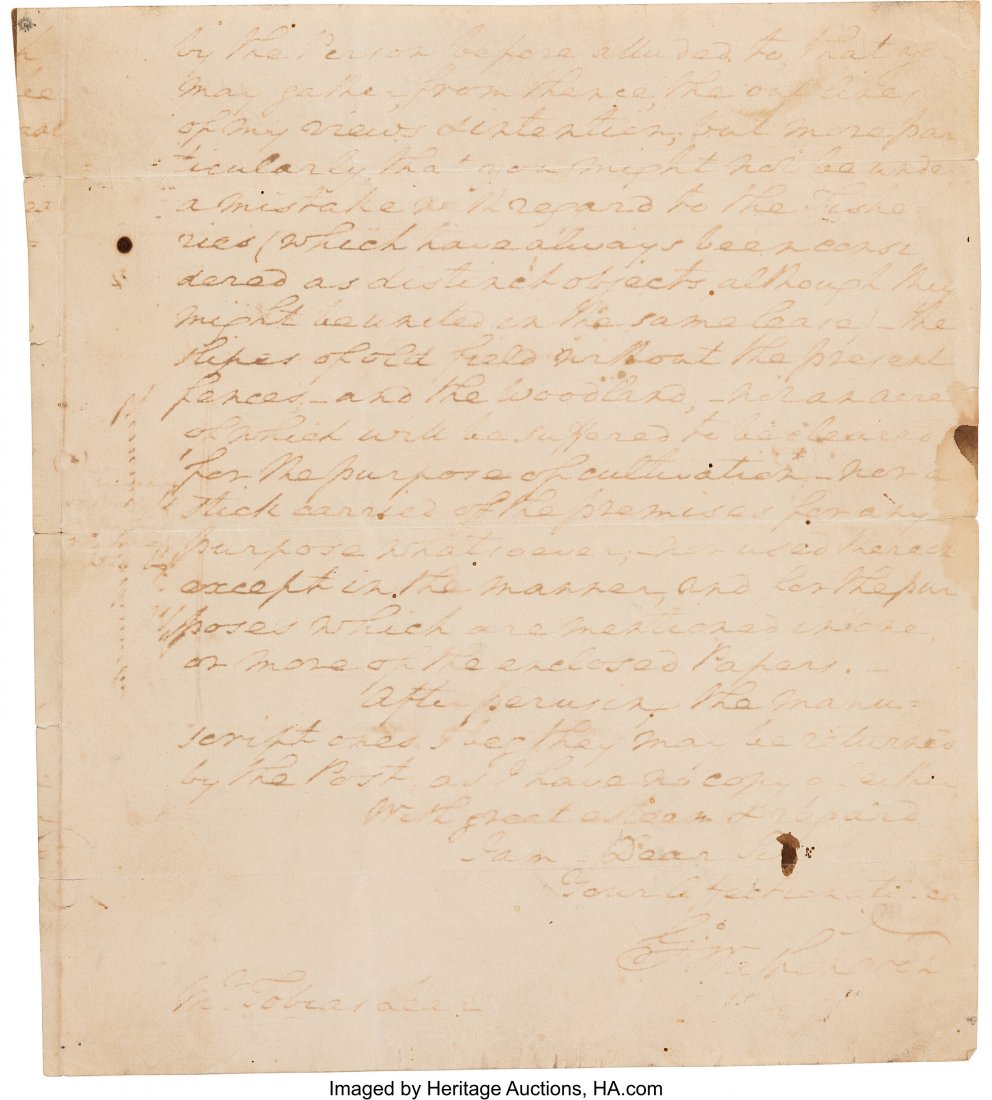 by the Person before alluded to that yo
may gather, from thence, the out lines
of my views & intention; but more par
ticularly, that you might not be unde
a mistake with regard to the Fishe
ries (which have always been consi
dered as distinct objects, although they
might be united in the same lease) – the
slipes of old field without the present
fences, – and the Woodland, – not an acre
of which will be suffered to be cleared
for the purpose of cultivation – nor a
stick carried of the premises for any
purpose whatsoever; – nor used thereon
except in the manner, and for the pur
poses which are mentioned in one,
or more of the enclosed Papers. –
After perusing the manu=
script ones I beg they may be returned
by the Post, as I have no copy of either
With great esteem & regard
I am – Dear Sir
Your Affectionate
G: Washington
Mr. Tobias Lear
Imaged by Heritage Auctions, HA.com